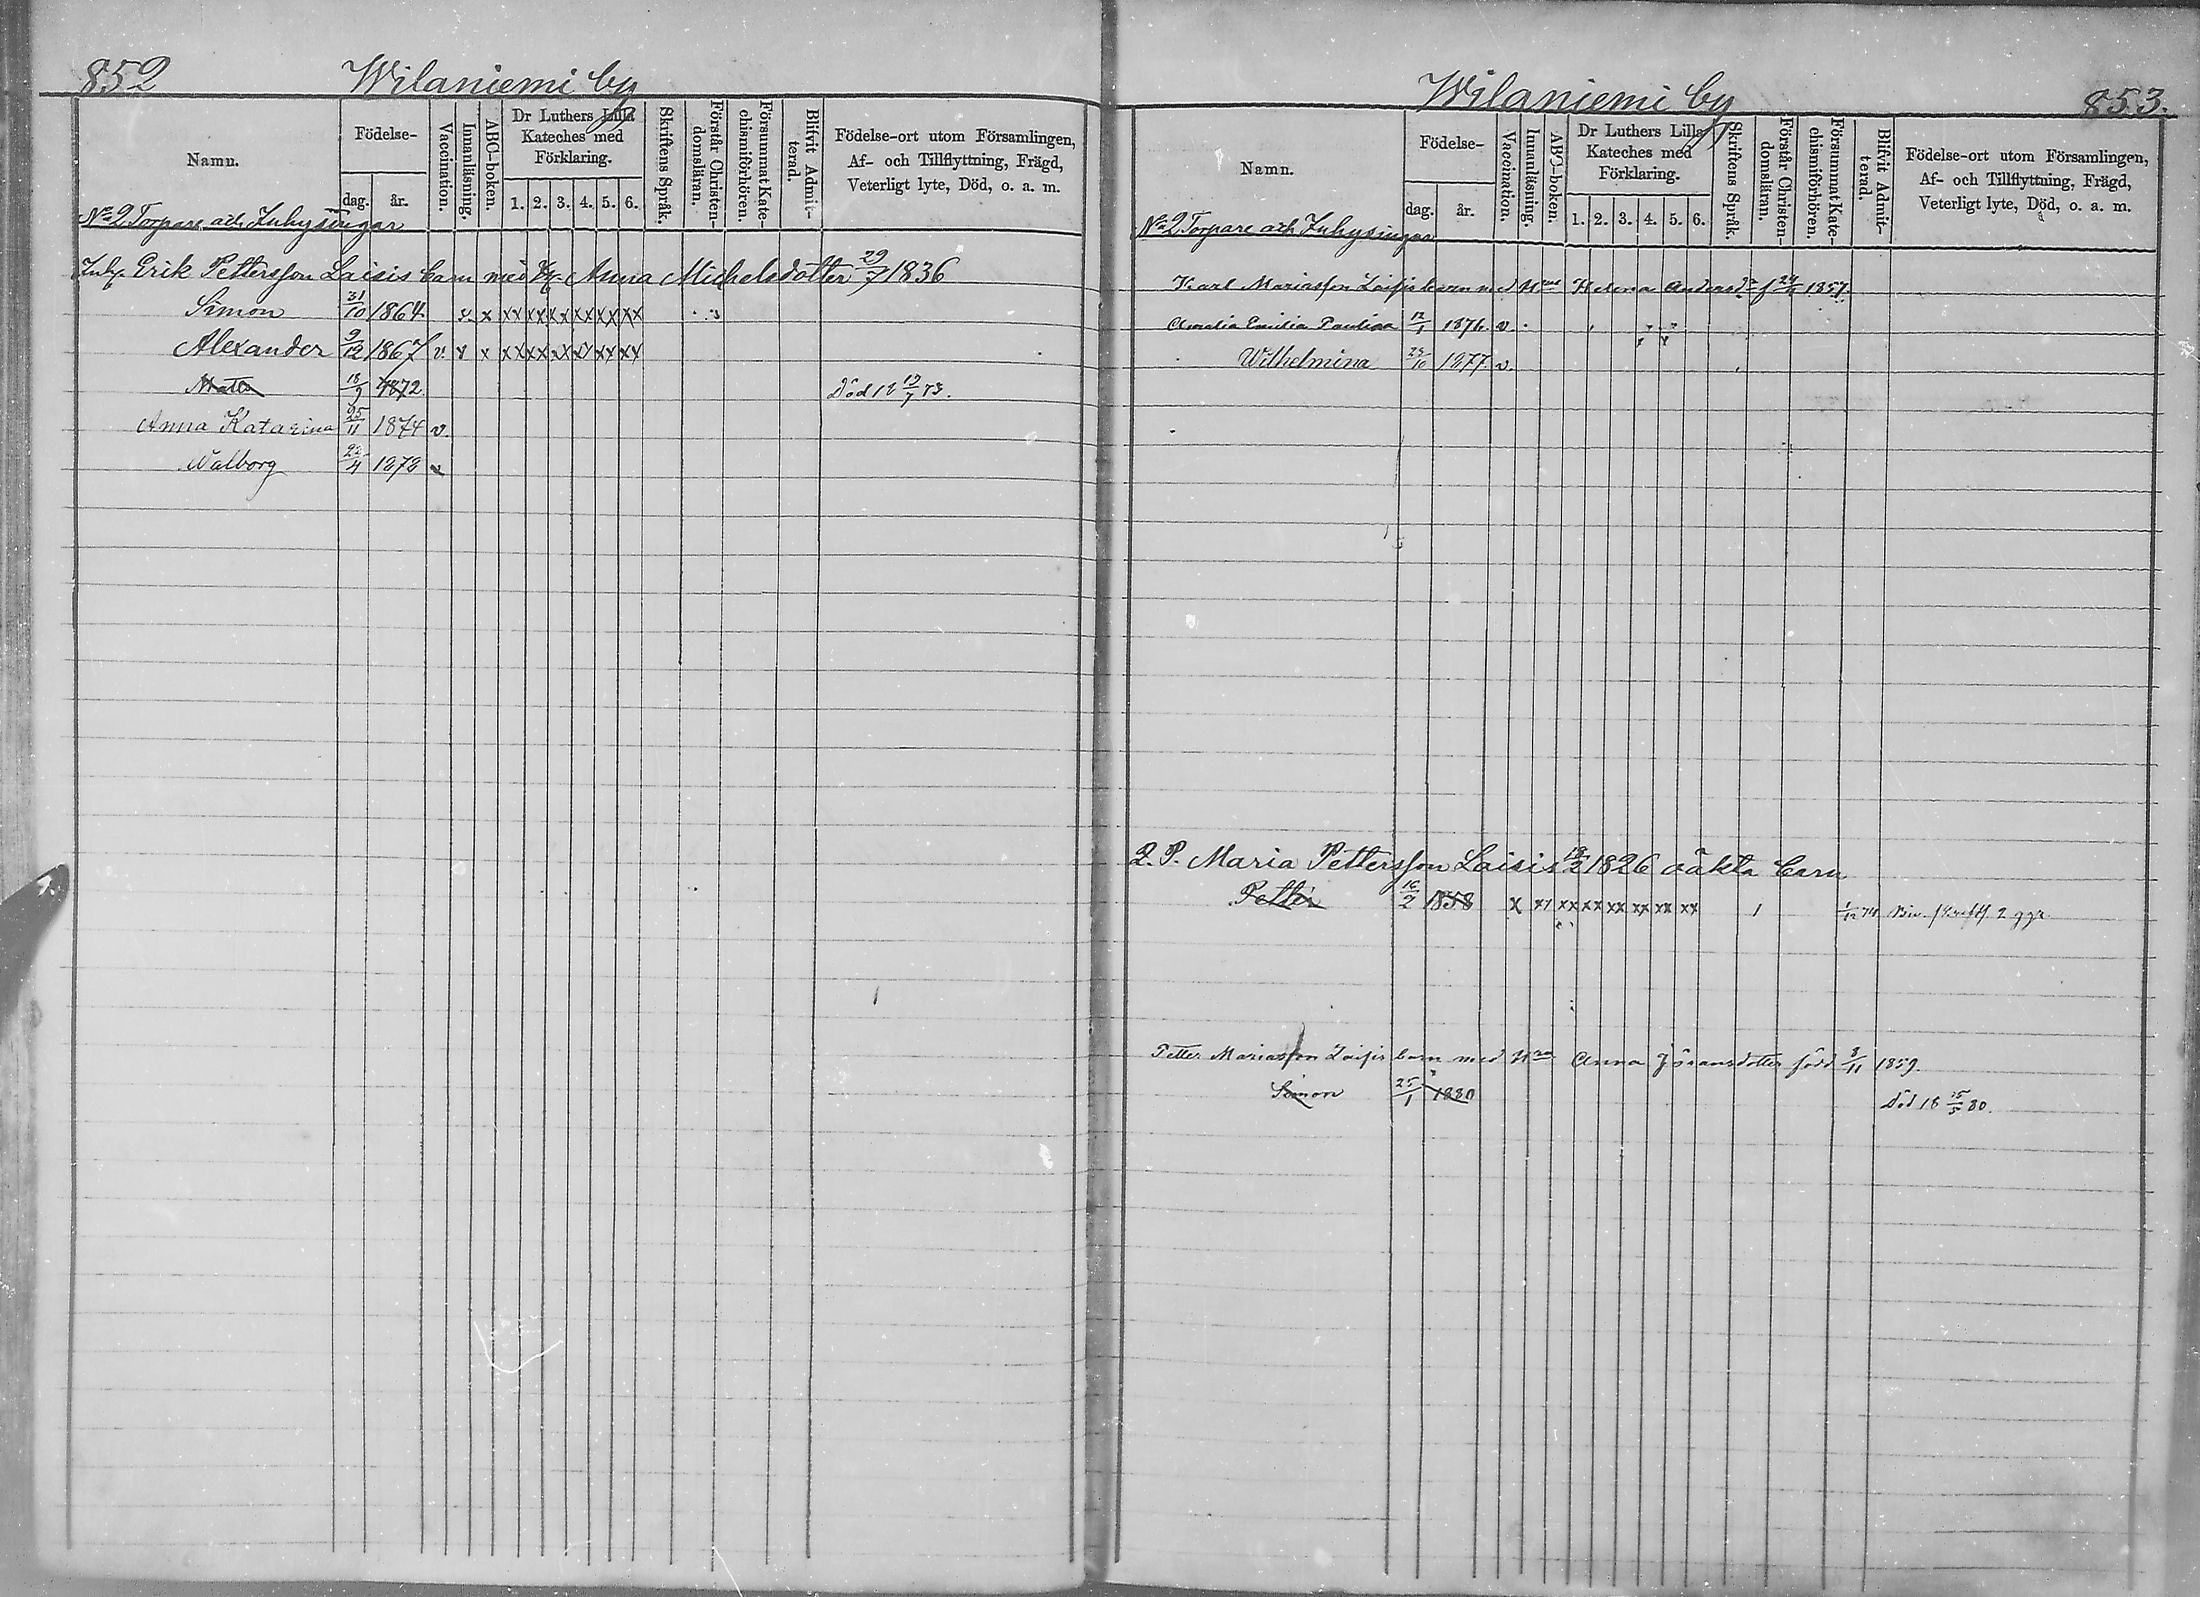 852
Wilaniemi by
Namn.
Födelse-
dag.
år.
Vaccination.
Innanläsning.
ABC-boken.
Dr Luthers Lilla
Kateches med
Förklaring.
1. 2. 3. 4. 5. 6.
Skriftens Språk.
Förstår Christen-
domsläran.
Försummat Kate-
chismiförhören.
Blifvit Admit-
terad.
Födelse-ort utom Församlingen,
Af- och Tillflyttning, Frägd,
Veterligt lyte, Död, o. a. m.
No 2 Torpare och Inhysingar
Inh. Erik Pettersson Laisis barn med H. Anna Michelsdotter 29/7 1836
Simon 31/10 1864 v. x xx xx xx xx xx xx
Alexander 9/12 1867 v. x x xx xx xx xx xx xx
Matts 18/9 1872 Död 18 19/7 73.
Anna Katarina 25/11 1874 v.
Walborg 22/4 1878 v
Wilaniemi by
853.
Namn.
Födelse-
dag.
år.
Vaccination.
Innanläsning.
ABC-boken.
Dr Luthers Lilla
Kateches med
Förklaring.
1. 2. 3. 4. 5. 6.
Skriftens Språk.
Förstår Christen-
domsläran.
Försummat Kate-
chismiförhören.
Blifvit Admit-
terad.
Födelse-ort utom Församlingen,
Af- och Tillflyttning, Frägd,
Veterligt lyte, Död, o. a. m.
No 2 Torpare och Inhysingar
Karl Mariasson Laisis barn med Helena Anders 1857.
Amalia Emilia Paulina 12/1 1876. v.
Wilhelmina 1877. v.
Q. P. Maria Pettersson Laisis 1826 oäkta barn
Petter 16/2 1858 x x xx xx xx xx xx xx 1 1/12 74 2 ggr
Petter Mariasson Laisis barn med Anna Jöransdotter född 8/11 1859.
Simon 25/1 1880 Död 18 25/5 80.